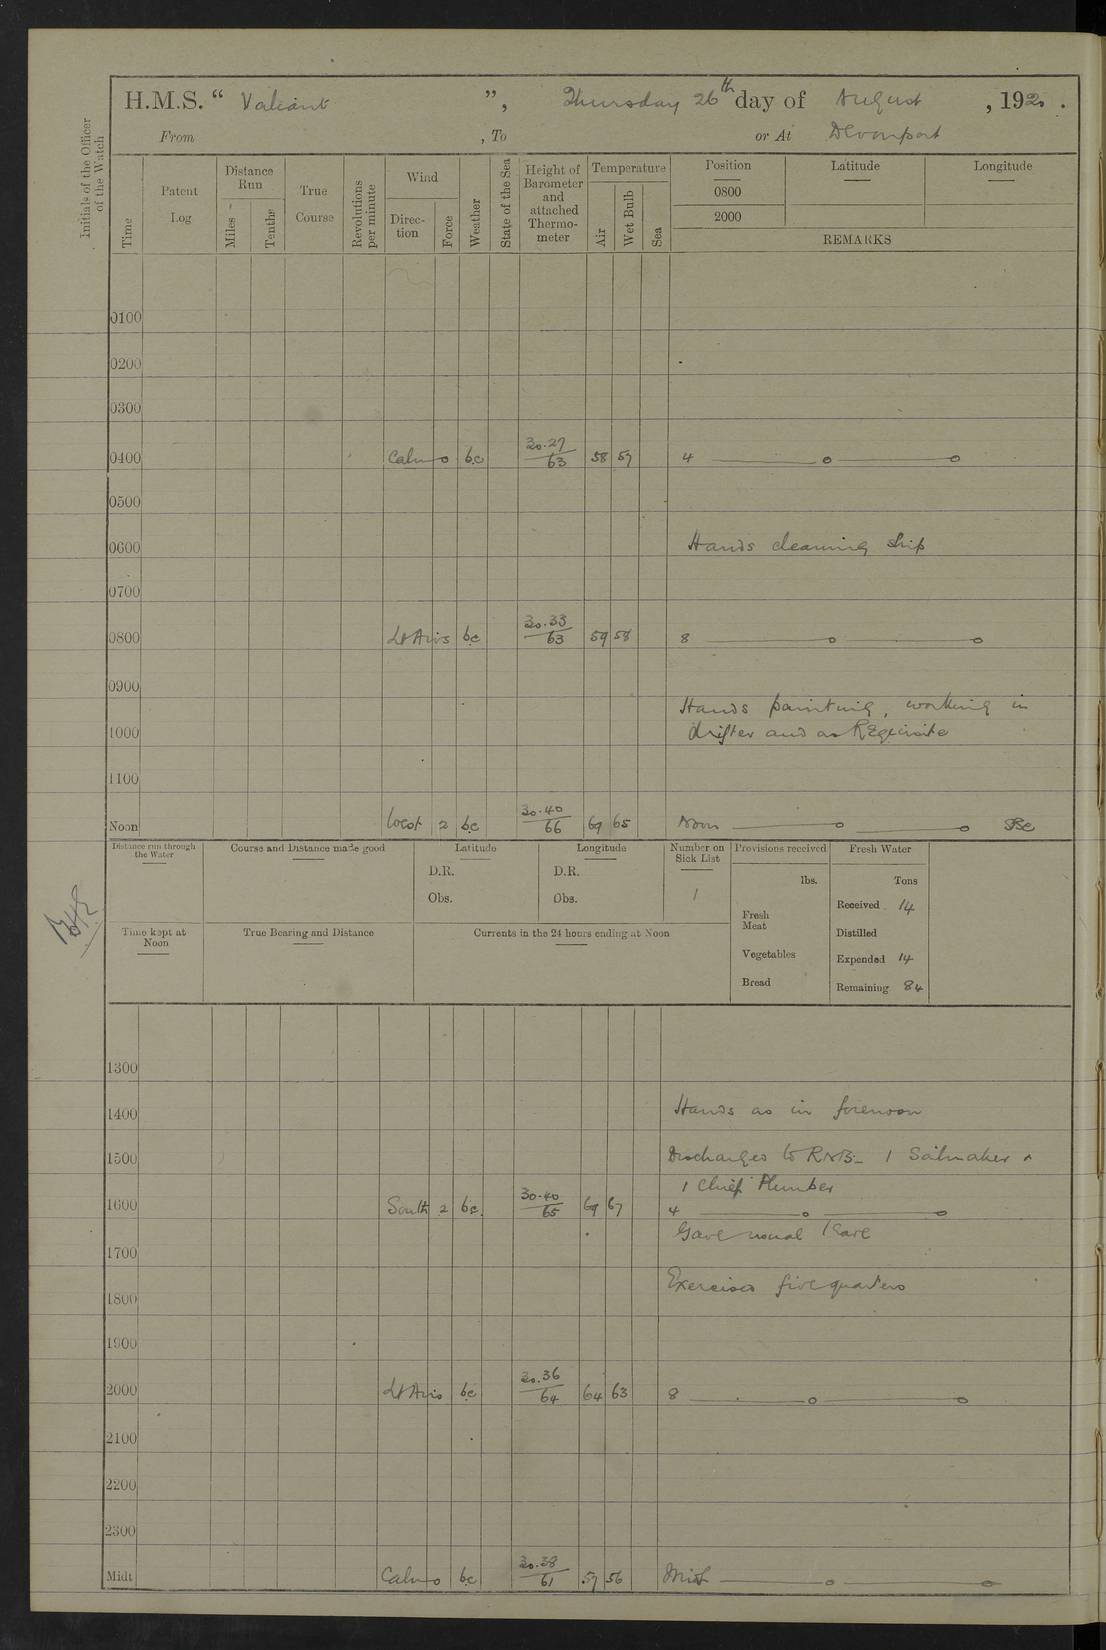 H.M.S. “ Valiant ”, Thursday 26th day of August , 1920 .
From , To or At Devonport
Initials of the Officer of the Watch
Time
Patent Log
Distance Run
Miles
Tenths
True Course
Revolutions per minute
Wind
Direc- tion
Force
Weather
State of the Sea
Height of Barometer and attached Thermo- meter
Temperature
Air
Wet Bulb
Sea
Position Latitude Longitude
0800
2000
REMARKS
0100
0200
0300
0400 Calm 0 bc 30.27/63 58 57 4 ———o———o
0500
0600 Hands cleaning ship
0700
0800 Lt Airs bc 30.33/63 59 58 8 ———o———o
0900 Hands painting, working in
1000 drifter and as Requisite
1100
Noon West 2 bc 30.40/66 69 65 Noon ———o———o
Distance run through the Water
Course and Distance made good
Latitude
D.R.
Obs.
Longitude
D.R.
Obs.
Number on Sick List
1
Provisions received
lbs.
Fresh Meat
Vegetables
Bread
Fresh Water
Tons
Received 14
Distilled
Expended 14
Remaining 84
Time kept at Noon
True Bearing and Distance
Currents in the 24 hours ending at Noon
1300
1400 Hands as in forenoon
1500 Discharges to RNB- 1 Sailmaker &
1 Chief Plumber
1600 South 2 bc. 30.40/65 69 67 4 ———o———o
Gave usual leave
1700
Exercises fire quarters
1800
1900
2000 Lt Airs bc 30.36/64 64 63 8 ———o———o
2100
2200
2300
Midt Calm 0 bc 30.38/61 57 56 Midt ———o———o